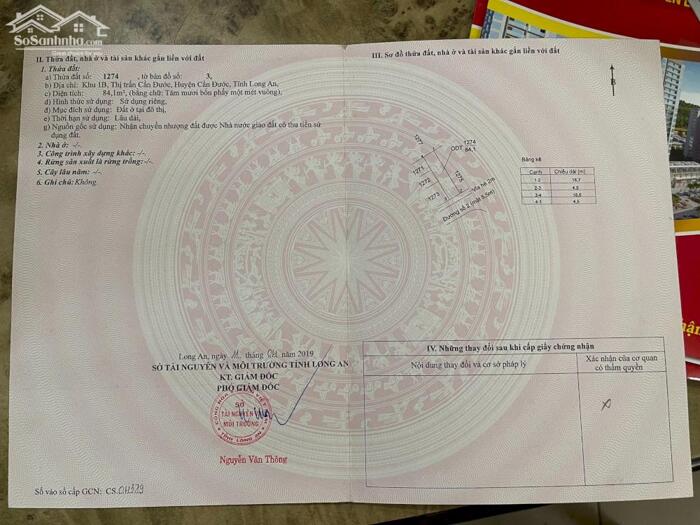 SoSanhnha.com
II. Thửa đất, nhà ở và tài sản khác gắn liền với đất
1. Thửa đất:
a) Thửa đất số: 1274 , tờ bản đồ số: 3,
b) Địa chỉ: Khu 1B, Thị trấn Cần Đước, Huyện Cần Đước, Tỉnh Long An,
c) Diện tích: 84,1m², (bằng chữ: Tám mươi bốn phẩy một mét vuông),
d) Hình thức sử dụng: Sử dụng riêng,
đ) Mục đích sử dụng: Đất ở tại đô thị,
e) Thời hạn sử dụng: Lâu dài,
g) Nguồn gốc sử dụng: Nhận chuyển nhượng đất được Nhà nước giao đất có thu tiền sử
dụng đất.
2. Nhà ở: -/-
3. Công trình xây dựng khác: -/-
4. Rừng sản xuất là rừng trồng: -/-
5. Cây lâu năm: -/-
6. Ghi chú: Không.
Long An, ngày tháng năm 2019
SỞ TÀI NGUYÊN VÀ MÔI TRƯỜNG TỈNH LONG AN
KT. GIÁM ĐỐC
PHÓ GIÁM ĐỐC
SỞ
TÀI NGUYÊN
MÔI TRƯỜNG
TỈNH LONG AN
Nguyễn Văn Thông
Số vào sổ cấp GCN: CS.
III. Sơ đồ thửa đất, nhà ở và tài sản khác gắn liền với đất
B
1277
1274
ODT 84,1
1271
1272
1273
1275
Vỉa hè 2m
Đường số 2 (mặt 5,5m)
Bảng kê
Cạnh Chiều dài (m)
1-2
2-3 4,5
3-4
4-1 4,5
IV. Những thay đổi sau khi cấp giấy chứng nhận
Nội dung thay đổi và cơ sở pháp lý
Xác nhận của cơ quan
có thẩm quyền